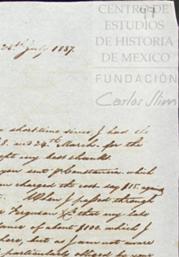 CENTRO DE
ESTUDIOS
DE HISTORIA
DE MEXICO
FUNDACIÓN
Carlos Slim
26th July 1837.
a short time since I had the
8. and 24th March. for the
my best thanks
you sent p Constance. which
charged the cost say $15. again
When I passed through
Ferguson & Co. that my late
of about $100. which I
here, but as I am not aware
particularly obliged by your